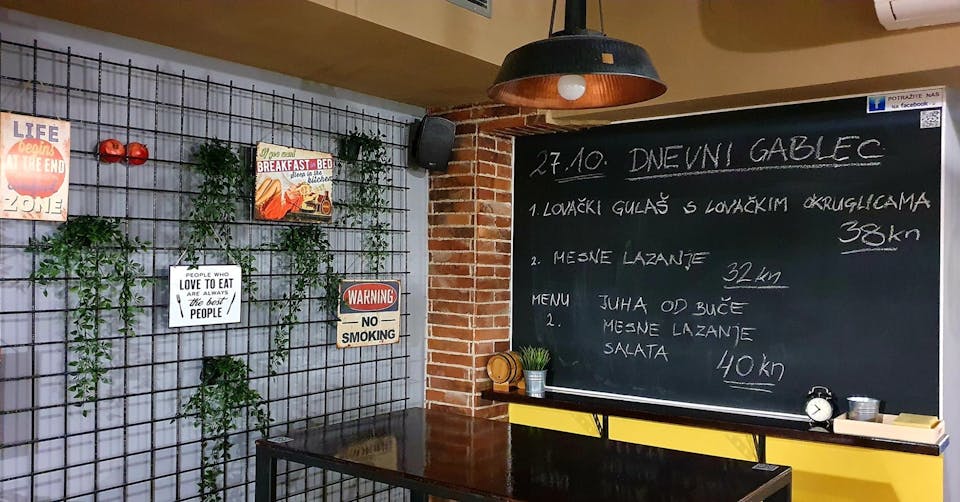 LIFE
begins
AT THE END
ZONE
If you want
BREAKFAST IN BED
Sleep in the
kitchen
PEOPLE WHO
LOVE TO EAT
ARE ALWAYS
the best
PEOPLE
WARNING
NO
SMOKING
POTRAŽITE NAS
NA facebook-u
27.10. DNEVNI GABLEC
1. LOVAČKI GULAŠ S LOVAČKIM OKRUGLICAMA
38kn
2. MESNE LAZANJE
32kn
MENU JUHA OD BUČE
2. MESNE LAZANJE
SALATA
40kn